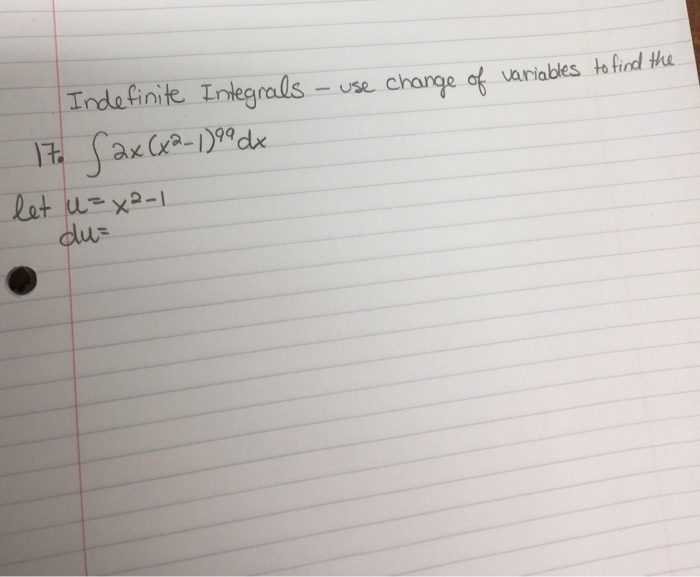 Indefinite Integrals - use change of variables to find the
17. ∫2x(x²-1)⁹⁹dx
let u=x²-1
du=